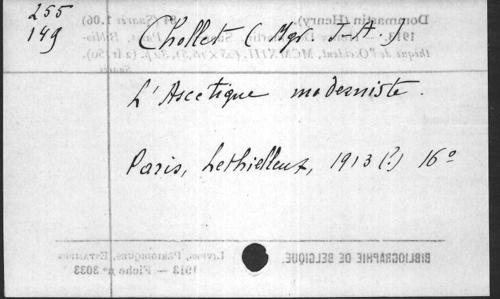 255
149
Chollet (Mgr. J-A.)
L'Ascétique moderniste.
Paris, Lethielleux, 1913 (?) 16°
BIBLIOGRAPHIE DE BELGIQUE.
LIVRES, PÉRIODIQUES, ESTAMPES
1913 — Fiche n° 3033
Dommartin (Henry).